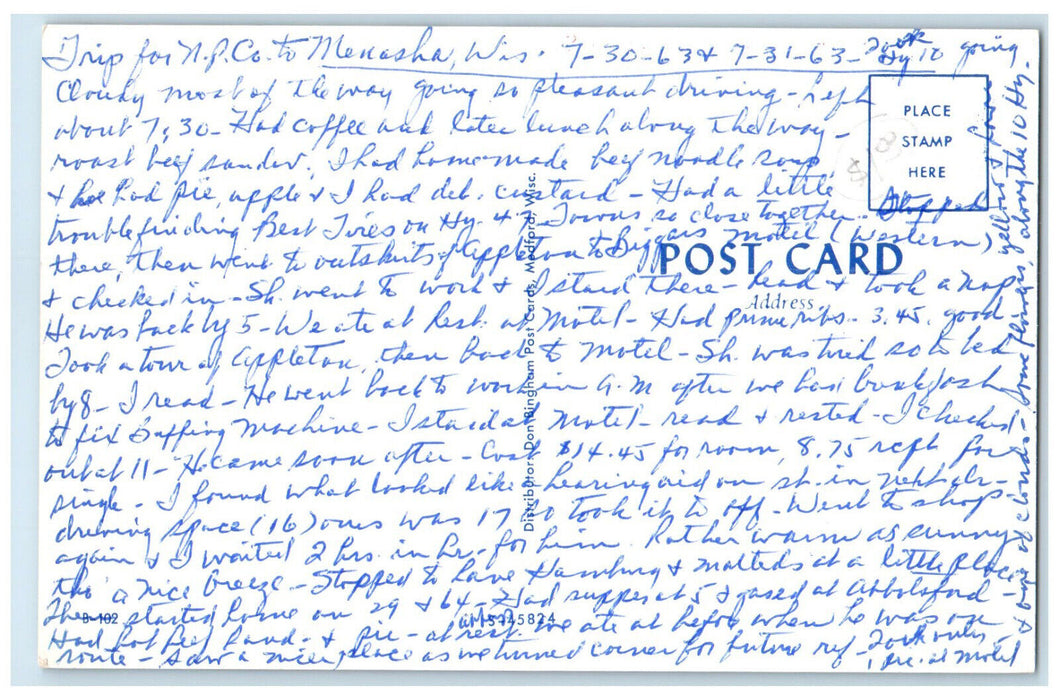 Trip for N.P. Co. to Menasha, Wis. 7-30-63 & 7-31-63 - Took Hy 10 going
Cloudy most of the way going so pleasant driving - Left
about 7;30 - Had coffee and later lunch along the way -
roast beef sandw. I had homemade beef noodle soup
& he had pie, apple & I had del. custard - Had a little
trouble finding Best Tires on Hy. 41 Towns so close together. Stopped
there, then went to outskirts of Appleton to Biggars Motel (Western)
& checked in - Sh. went to work & I staid there - read & took a nap
He was back by 5 - We ate at Rest. at Motel - Had prime ribs - 3.45. good
Took a tour of Appleton, then back to Motel - Sh. was tired so to bed
by 8 - I read - He went back to work in A.M after we had breakfast
to fix Buffing Machine - I staid at Motel - read & rested - I checked
out at 11 - He came soon after - Cost $14.45 for room, 8.75 rcpt for
single - I found what looked like hearing aid on st. in next
space (16) ours was 17 so took it to off. - Went to shop
again & I waited 2 hrs. in hr. for him. Rather warm as sunny
tho a nice breeze - Stopped to have Hamburg & malteds at a little place
Then started home on 29 & 64 - Had supper at 5 & gased at Abbotsford -
at rest. we ate at before when he was on
Had hot beef sand - & pie -
route - Saw a nice place as we turned corner for future ref - Took
pic. at Motel
& one of clouds - some flowers, along the 10 Hy.
yellow &
PLACE
STAMP
HERE
POST CARD
Address
Distributor: Don Bingham Post Cards, Medford, Wisc.
B-102